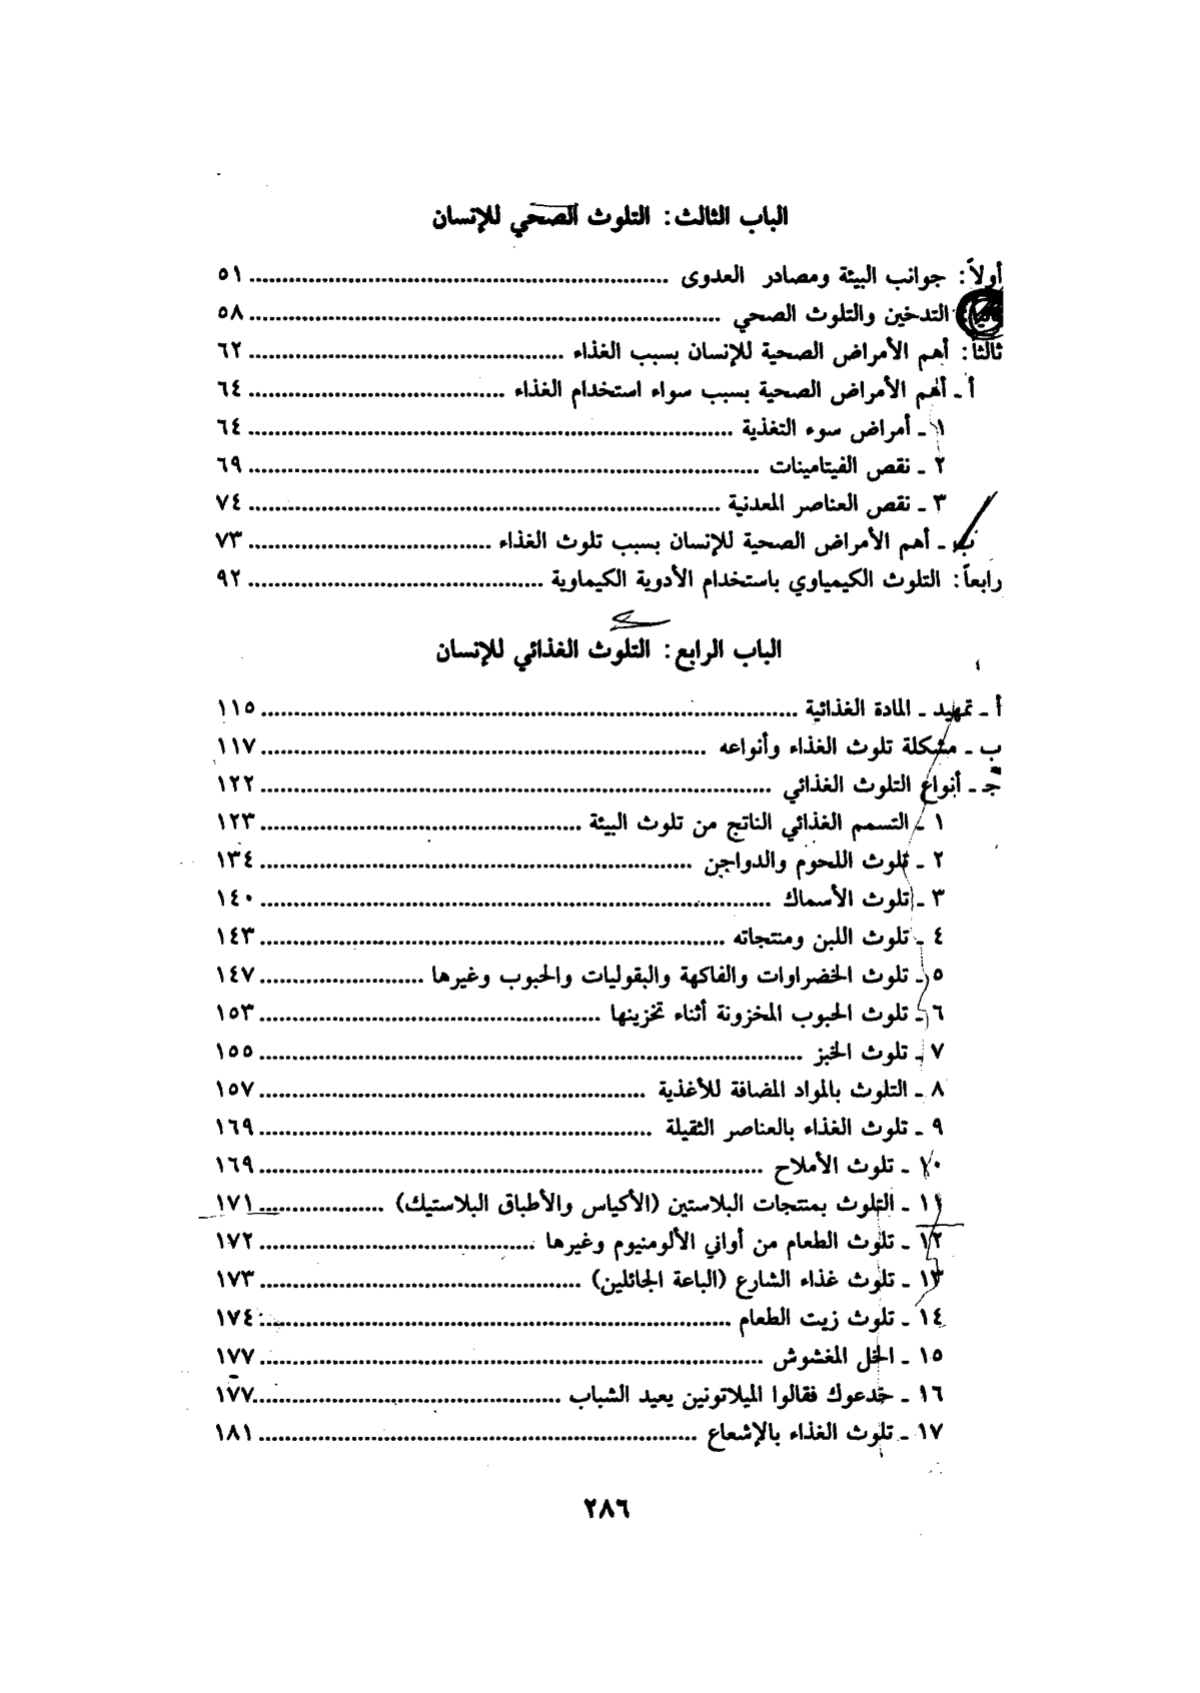 الباب الثالث: التلوث الصحي للإنسان
أولاً: جوانب البيئة ومصادر العدوى ..... ٥١
التدخين والتلوث الصحي ..... ٥٨
ثالثاً: أهم الأمراض الصحية للإنسان بسبب الغذاء ..... ٦٢
أ ـ أهم الأمراض الصحية بسبب سواء استخدام الغذاء ..... ٦٤
١ ـ أمراض سوء التغذية ..... ٦٤
٢ ـ نقص الفيتامينات ..... ٦٩
٣ ـ نقص العناصر المعدنية ..... ٧٤
ب ـ أهم الأمراض الصحية للإنسان بسبب تلوث الغذاء ..... ٧٣
رابعاً: التلوث الكيمياوي باستخدام الأدوية الكيماوية ..... ٩٢
الباب الرابع: التلوث الغذائي للإنسان
أ ـ تمهيد ـ المادة الغذائية ..... ١١٥
ب ـ مشكلة تلوث الغذاء وأنواعه ..... ١١٧
جـ ـ أنواع التلوث الغذائي ..... ١٢٢
١ ـ التسمم الغذائي الناتج من تلوث البيئة ..... ١٢٣
٢ ـ تلوث اللحوم والدواجن ..... ١٣٤
٣ ـ تلوث الأسماك ..... ١٤٠
٤ ـ تلوث اللبن ومنتجاته ..... ١٤٣
٥ ـ تلوث الخضراوات والفاكهة والبقوليات والحبوب وغيرها ..... ١٤٧
٦ ـ تلوث الحبوب المخزونة أثناء تخزينها ..... ١٥٣
٧ ـ تلوث الخبز ..... ١٥٥
٨ ـ التلوث بالمواد المضافة للأغذية ..... ١٥٧
٩ ـ تلوث الغذاء بالعناصر الثقيلة ..... ١٦٩
١٠ ـ تلوث الأملاح ..... ١٦٩
١١ ـ التلوث بمنتجات البلاستين (الأكياس والأطباق البلاستيك) ..... ١٧١
١٢ ـ تلوث الطعام من أواني الألومنيوم وغيرها ..... ١٧٢
١٣ ـ تلوث غذاء الشارع (الباعة الجائلين) ..... ١٧٣
١٤ ـ تلوث زيت الطعام ..... ١٧٤
١٥ ـ الخل المغشوش ..... ١٧٧
١٦ ـ خدعوك فقالوا الميلاتونين يعيد الشباب ..... ١٧٧
١٧ ـ تلوث الغذاء بالإشعاع ..... ١٨١
٢٨٦